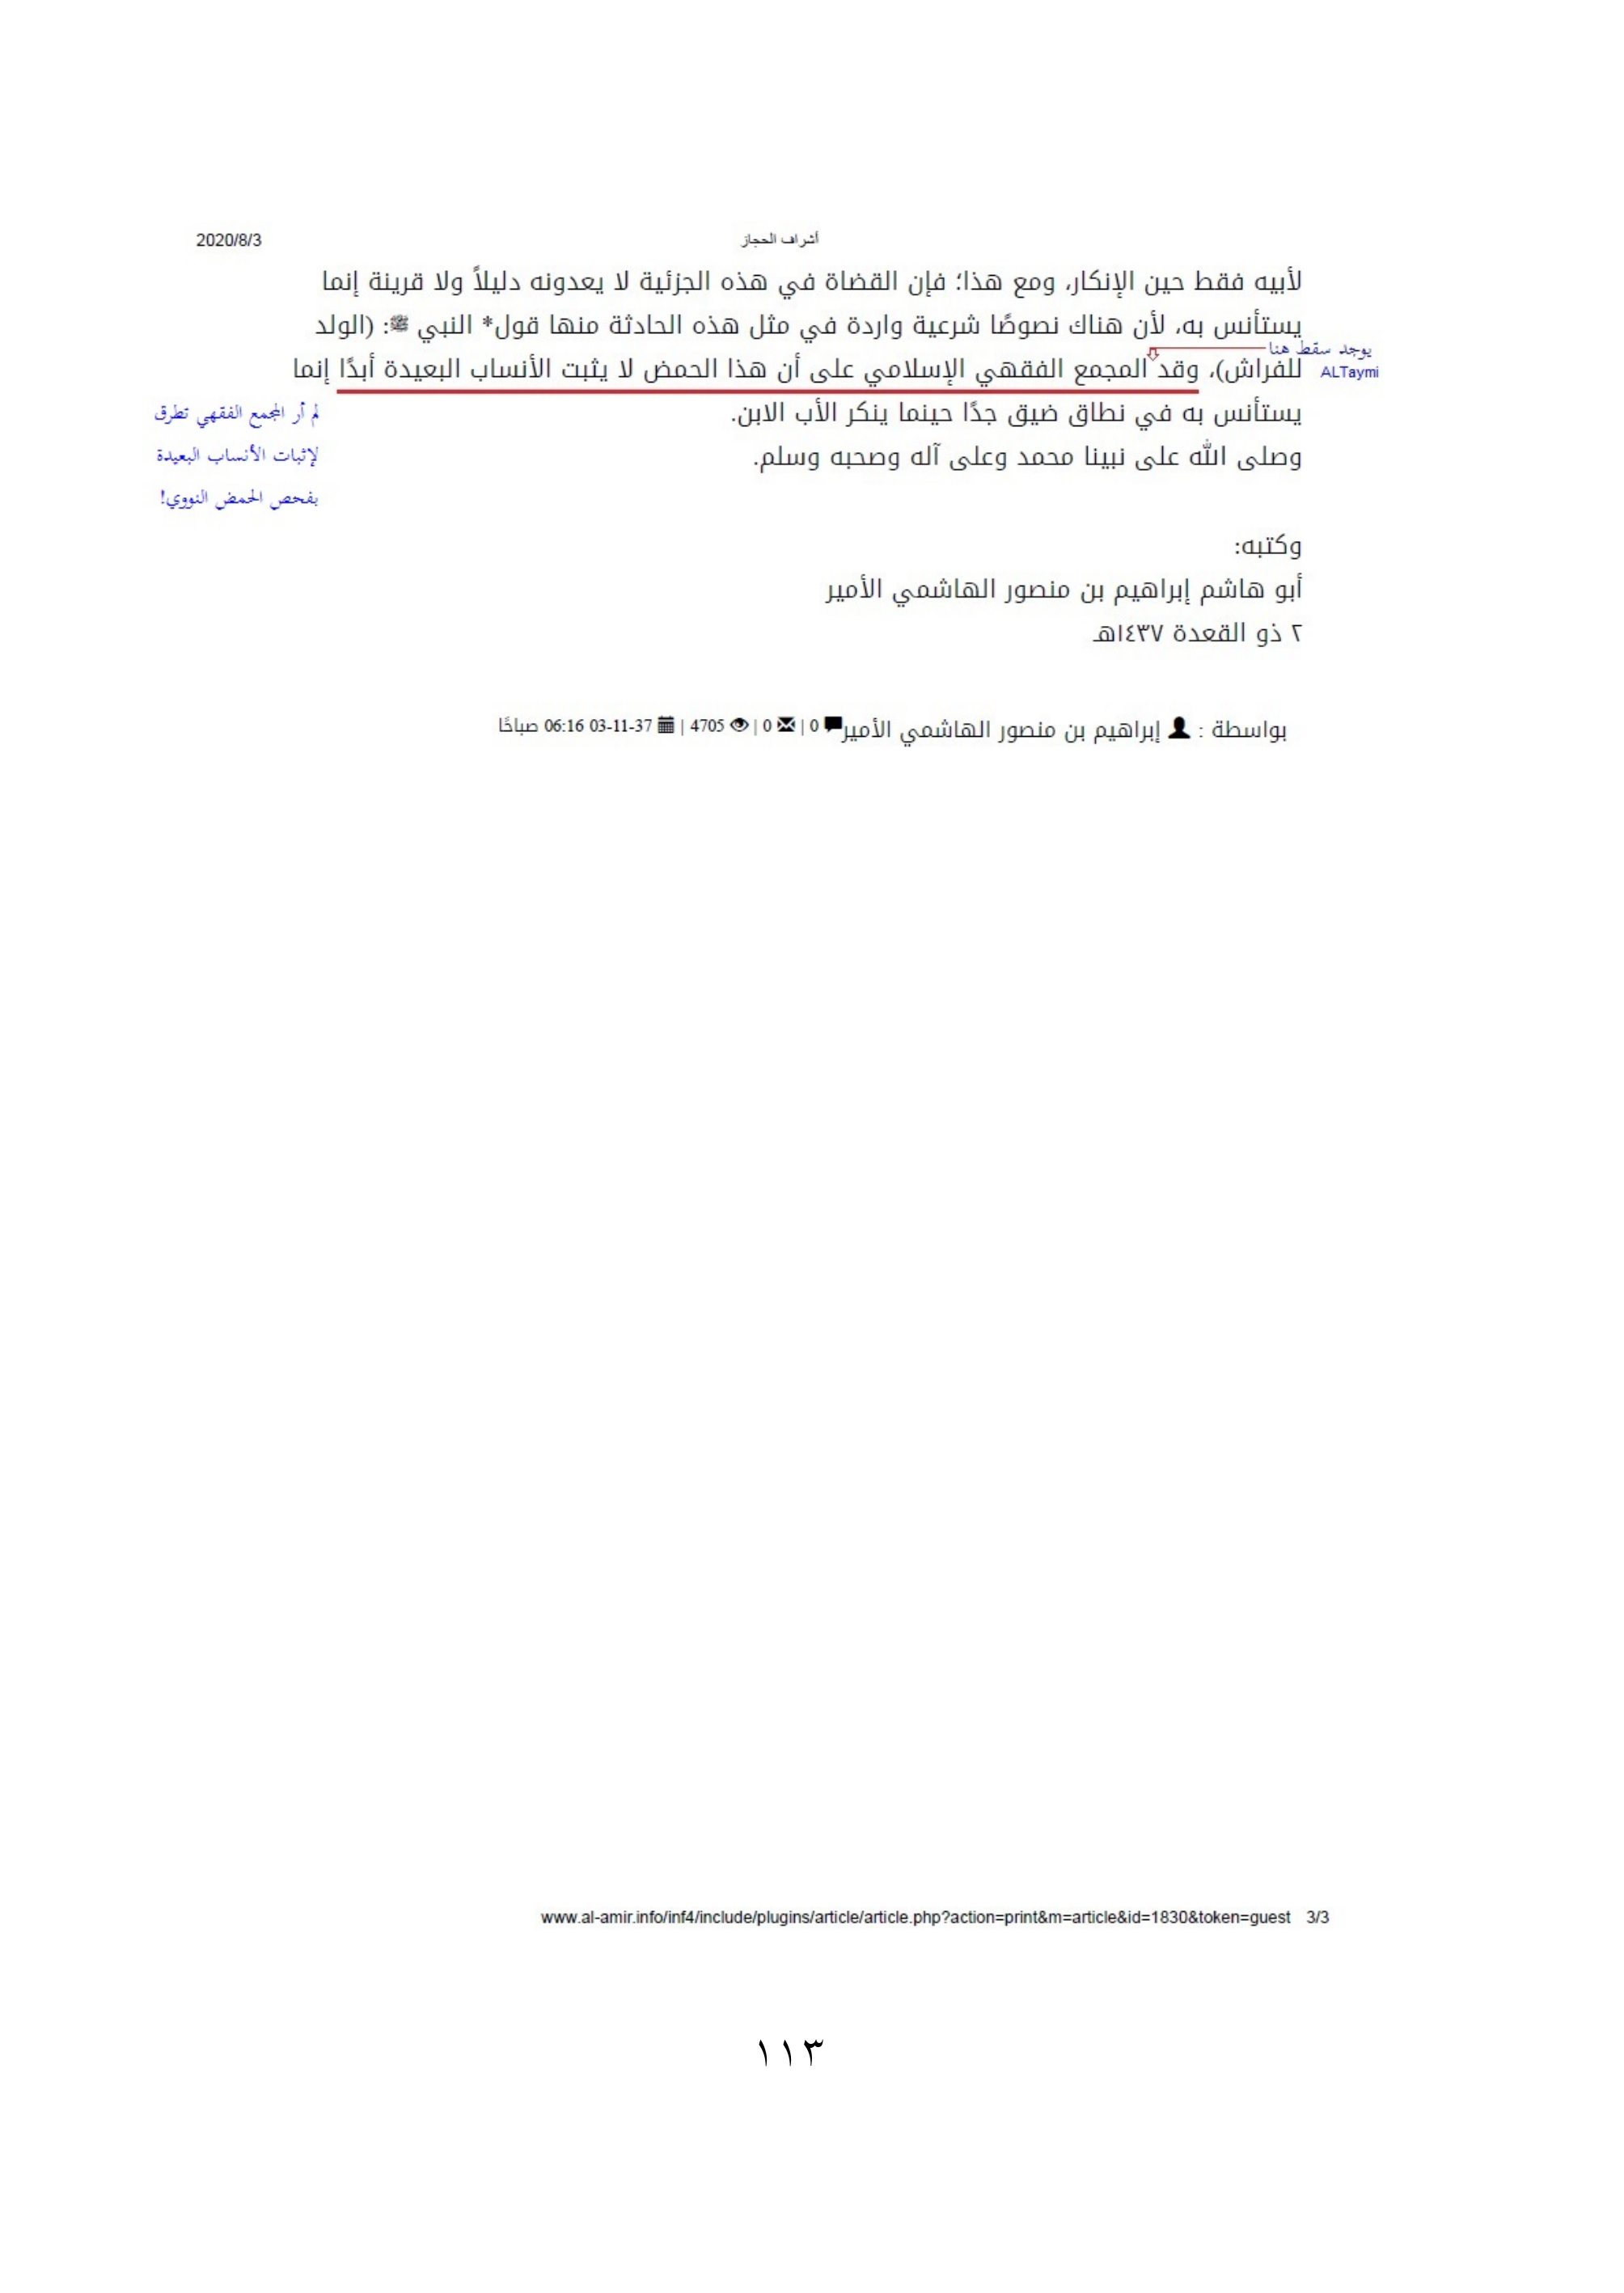 أشراف الحجاز
2020/8/3
لأبيه فقط حين الإنكار، ومع هذا؛ فإن القضاة في هذه الجزئية لا يعدونه دليلاً ولا قرينة إنما
يستأنس به، لأن هناك نصوصًا شرعية واردة في مثل هذه الحادثة منها قول* النبي ﷺ: (الولد
يوجد سقط هنا
ALTaymi
للفراش)، وقد المجمع الفقهي الإسلامي على أن هذا الحمض لا يثبت الأنساب البعيدة أبدًا إنما
يستأنس به في نطاق ضيق جدًا حينما ينكر الأب الابن.
لم أر المجمع الفقهي تطرق
لإثبات الأنساب البعيدة
بفحص الحمض النووي!
وصلى الله على نبينا محمد وعلى آله وصحبه وسلم.
وكتبه:
أبو هاشم إبراهيم بن منصور الهاشمي الأمير
٢ ذو القعدة ١٤٣٧هـ
بواسطة : إبراهيم بن منصور الهاشمي الأمير 0 | 0 | 4705 | 03-11-37 06:16 صباحًا
www.al-amir.info/inf4/include/plugins/article/article.php?action=print&m=article&id=1830&token=guest 3/3
١١٣